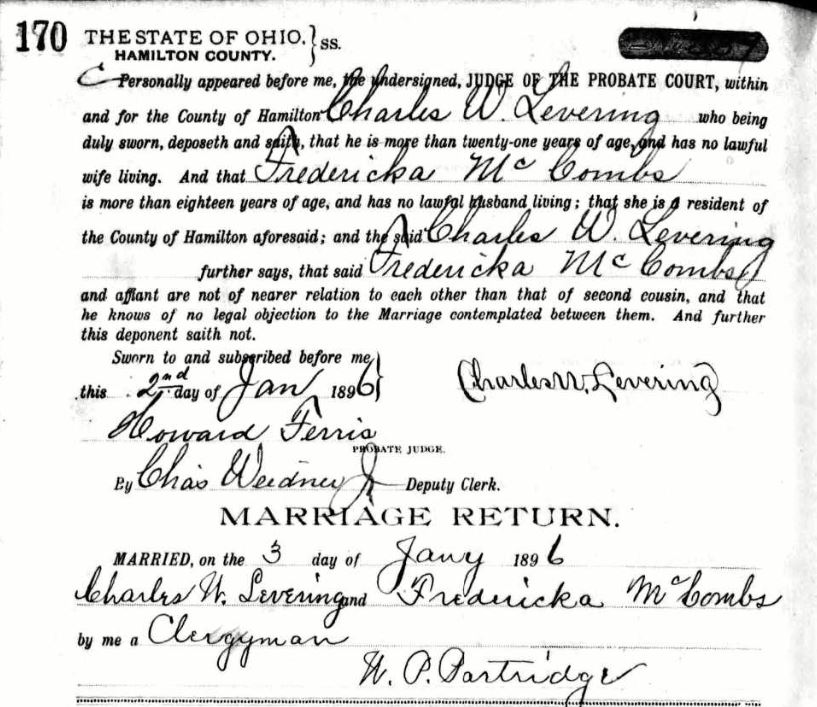 170 THE STATE OF OHIO, } SS.
HAMILTON COUNTY.
Personally appeared before me, the undersigned, JUDGE OF THE PROBATE COURT, within
and for the County of Hamilton Charles W. Levering who being
duly sworn, deposeth and saith, that he is more than twenty-one years of age, and has no lawful
wife living. And that Fredericka Mc Combs
is more than eighteen years of age, and has no lawful husband living; that she is a resident of
the County of Hamilton aforesaid; and the said Charles W. Levering
further says, that said Fredericka Mc Combs
and affiant are not of nearer relation to each other than that of second cousin, and that
he knows of no legal objection to the Marriage contemplated between them. And further
this deponent saith not.
Sworn to and subscribed before me }
this 2nd day of Jan 1896 } Charles W. Levering
Howard Ferris
PROBATE JUDGE.
By Chas Weidner Jr Deputy Clerk.
MARRIAGE RETURN.
MARRIED, on the 3 day of Jany 1896
Charles W. Levering and Fredericka Mc Combs
by me a Clergyman
W. P. Partridge